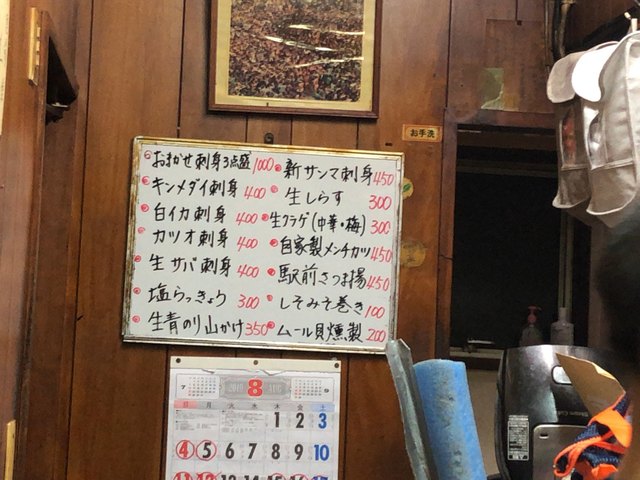 おまかせ刺身3点盛 1000
キンメダイ刺身 400
白イカ刺身 400
カツオ刺身 400
生サバ刺身 400
塩らっきょう 300
生青のり山かけ 350
新サンマ刺身 450
生しらす 300
生クラゲ(中華・梅) 300
自家製メンチカツ 450
駅前さつま揚 450
しそみそ巻き 100
ムール貝燻製 200
お手洗
7 2019 8 AUG 9
日 月 火 水 木 金 土
1 2 3
4 5 6 7 8 9 10